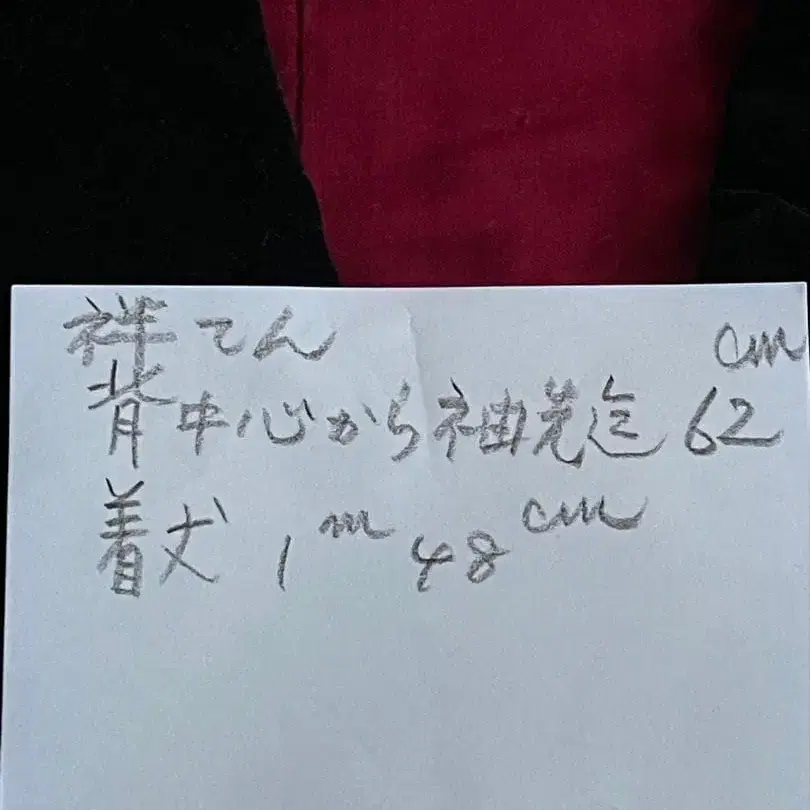 袢てん
背中心から袖先迄 62cm
着丈 1m48cm